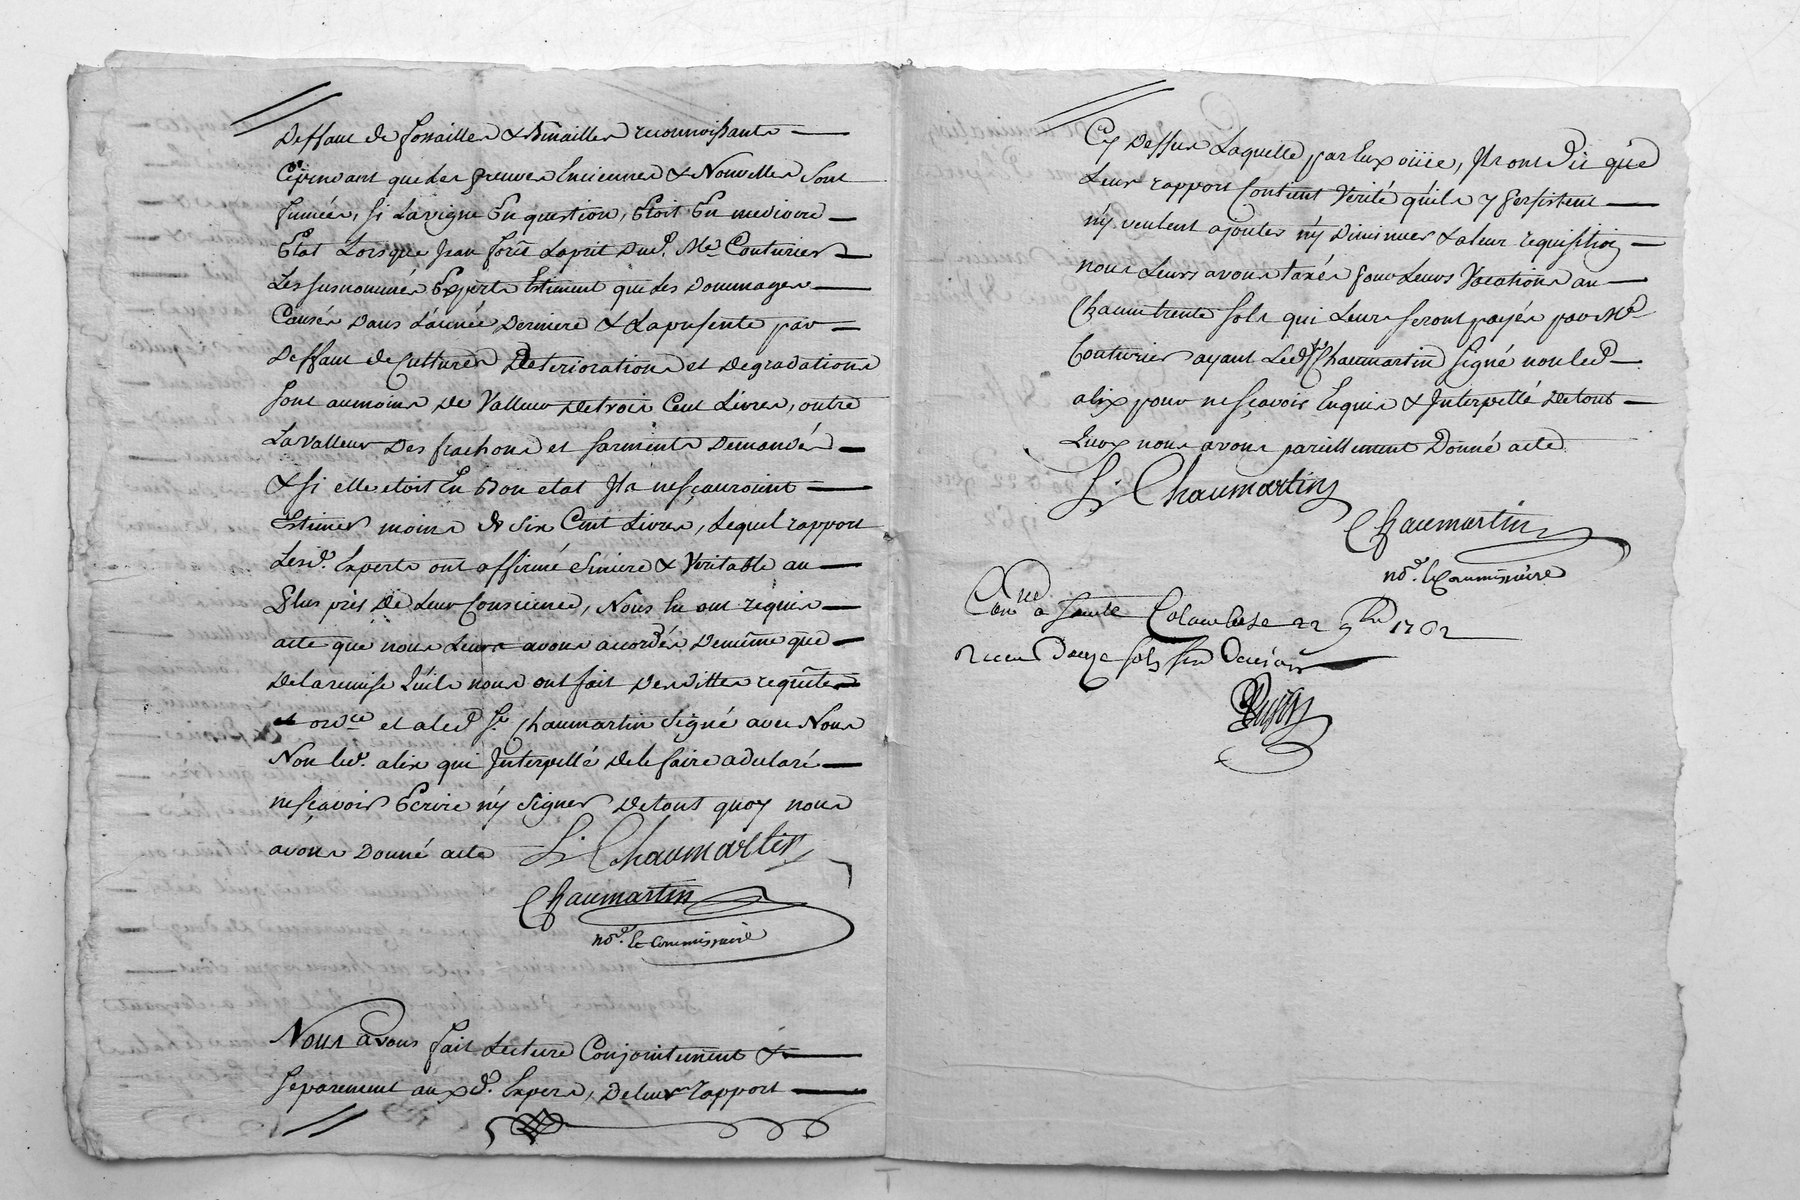 deffaut de fossailles & binailles reconnoissants
Cependant que les preuves Enciennes & Nouvelles sont
fumées, si la vigne En question, Etoit En mediocre
Etat Lorsque Jean foré la prit dud. Me. Couturier
Les susnommés Experts Estiment que les dommages
Causés dans L'année derniere & La presente par
deffaut de Cultures deteriorations et degradations
sont au moins de Valleur de trois Cent Livres, outre
La Valleur des frachons et sarments demandés
& si elle etoit En Bon etat Ils ne sçauroient
Estimer moins de Six Cent Livres, Lequel rapport
Lesd. Experts ont affirmé sincere & Veritable au
Plus près de Leur Conscience, Nous En ont requis
acte que nous Leurs avons accordés de même que
de la remise Quils nous ont fait des dittes requêtes
et ordce et a led. Sr. chaumartin signé avec Nous
Non led. alix qui Interpellé de le faire a declaré
ne sçavoir Ecrire n'y signer de tout quoy nous
avons donné acte S. Chaumartin
Chaumartin
nore. le Commissaire
Nous avons fait Lecture Conjointement &
separement aux d. Expers, de leur rapport
Cy dessus Laquelle par Eux ouïe, Ils ont dit que
Leur rapport Contient Verité qu'ils y Persistent
n'y veulent ajouter n'y diminuer & a leur requisition
nous Leurs avons taxés pour Leurs Vacations au
Chacun trente sols qui Leurs seront payés par Me
Couturier ayant Led. Sr Chaumartin signé non led
alix pour ne sçavoir Enquis & Interpellé de tout
Quoy nous avons pareillement donné acte
S. Chaumartin
Chaumartin
nore. le Commissaire
Conné a Sainte Colombe le 22 9bre 1762
recu douze sols six deniers